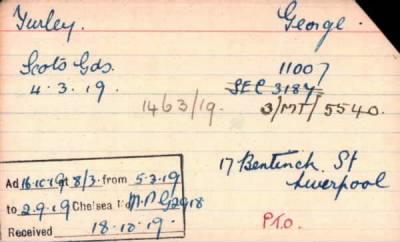 Turley. George.
Scots Gds. 11007
4.3.19. SEC 3187
1463/19. 3/MT/5540.
17 Bentinck. St
Liverpool
Ad 16.10.19 at 8/3. from 5.3.19
to 2.9.19 Chelsea
Received 18.10.19.
P.T.O.